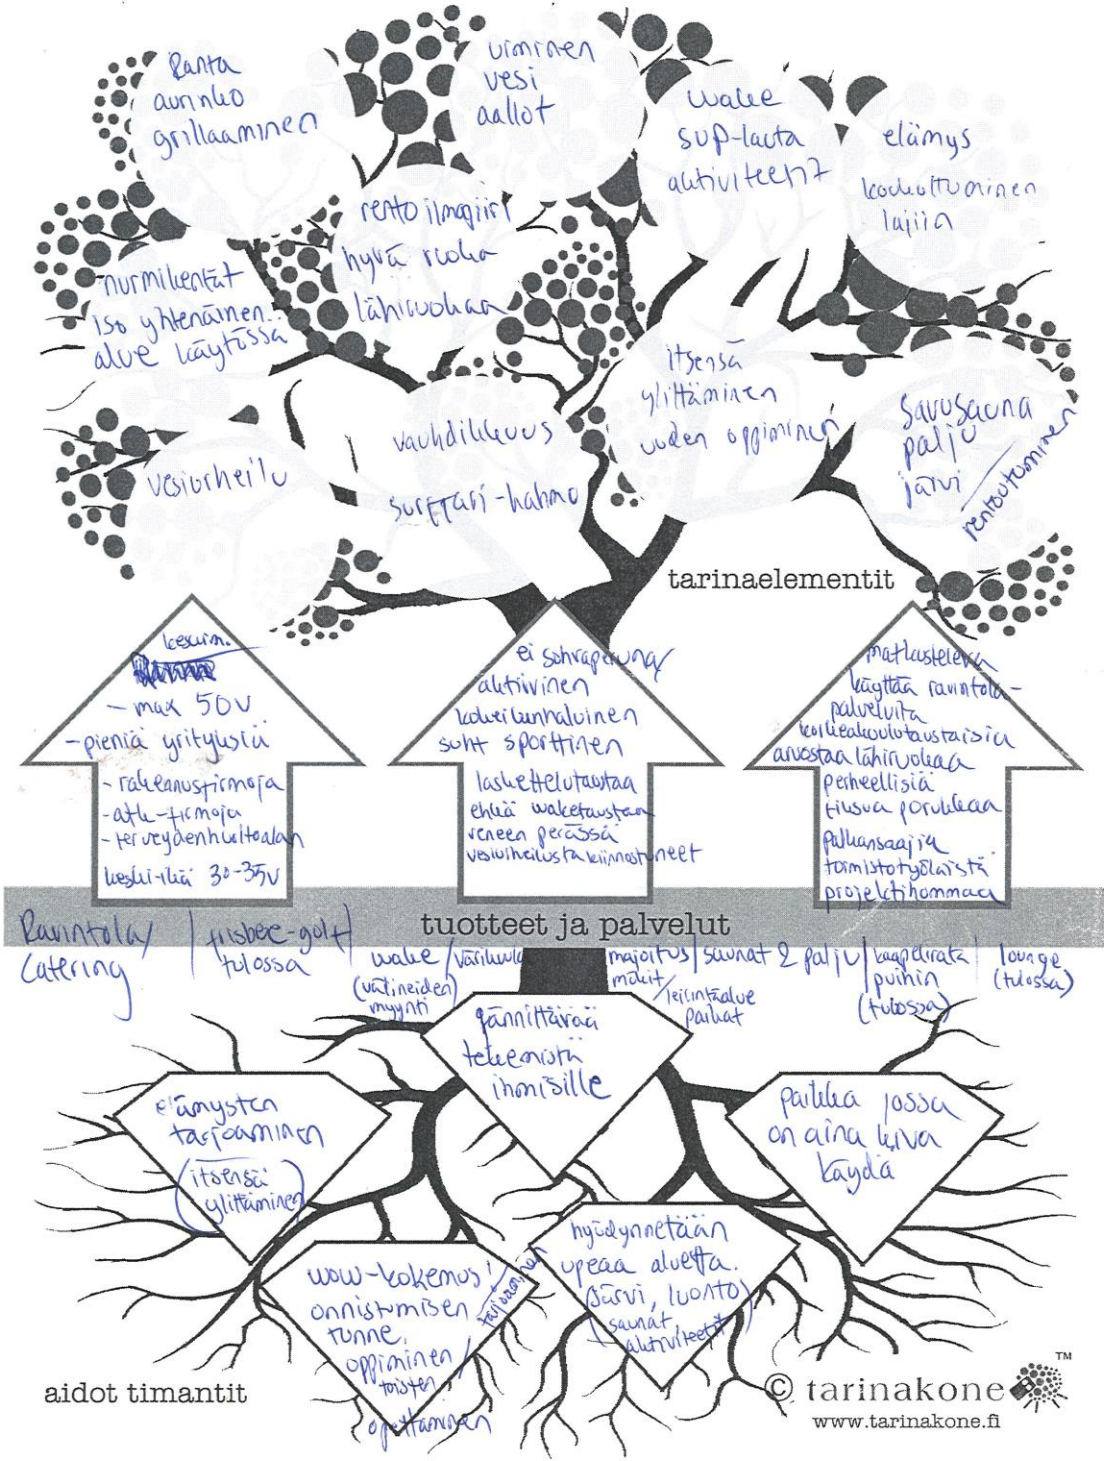 Ranta
aurinko
grillaaminen
uiminen
vesi
aallot
wake
sup-lauta
aktiviteetit
elämys
koukuttuminen
lajiin
nurmikentät
iso yhtenäinen
alue käytössä
rento ilmapiiri
hyvä ruoka
lähiruokaa
vesiurheilu
vauhdikkuus
surffari-hahmo
itsensä
ylittäminen
uuden oppiminen
Savusauna
palju
järvi
rentoutuminen
tarinaelementit
keskim.
- max 50v
- pieniä yrityksiä
- rakennusfirmoja
- atk-firmoja
- terveydenhuoltoalan
keski-ikä 30-35v
ei sohvaperuna/
aktiivinen
kokeilunhaluinen
suht sporttinen
laskettelutaustaa
ehkä waketaustaa
veneen perässä
vesiurheilusta kiinnostuneet
matkusteleva
käyttää ravintola-
palveluita
korkeakoulutaustaisia
arvostaa lähiruokaa
perheellisiä
fiksua porukkaa
palkansaajia
toimistotyöläistä
projektihommaa
tuotteet ja palvelut
Ravintola/
Catering
frisbee-golf
tulossa
wake
(välineiden
myynti
majoitus
mökit
/leirintäalue
paikat
saunat 2 palju
kaapelirata
puihin
(tulossa)
lounge
(tulossa)
jännittävää
tekemistä
ihmisille
elämysten
tarjoaminen
(itsensä
ylittäminen)
paikka jossa
on aina kiva
käydä
wow-kokemus!
onnistumisen
tunne.
oppiminen/
toisten
opettaminen
tarjoaminen
hyödynnetään
upeaa aluetta.
(järvi, luonto)
(saunat,
aktiviteetit
aidot timantit
© tarinakone ™
www.tarinakone.fi